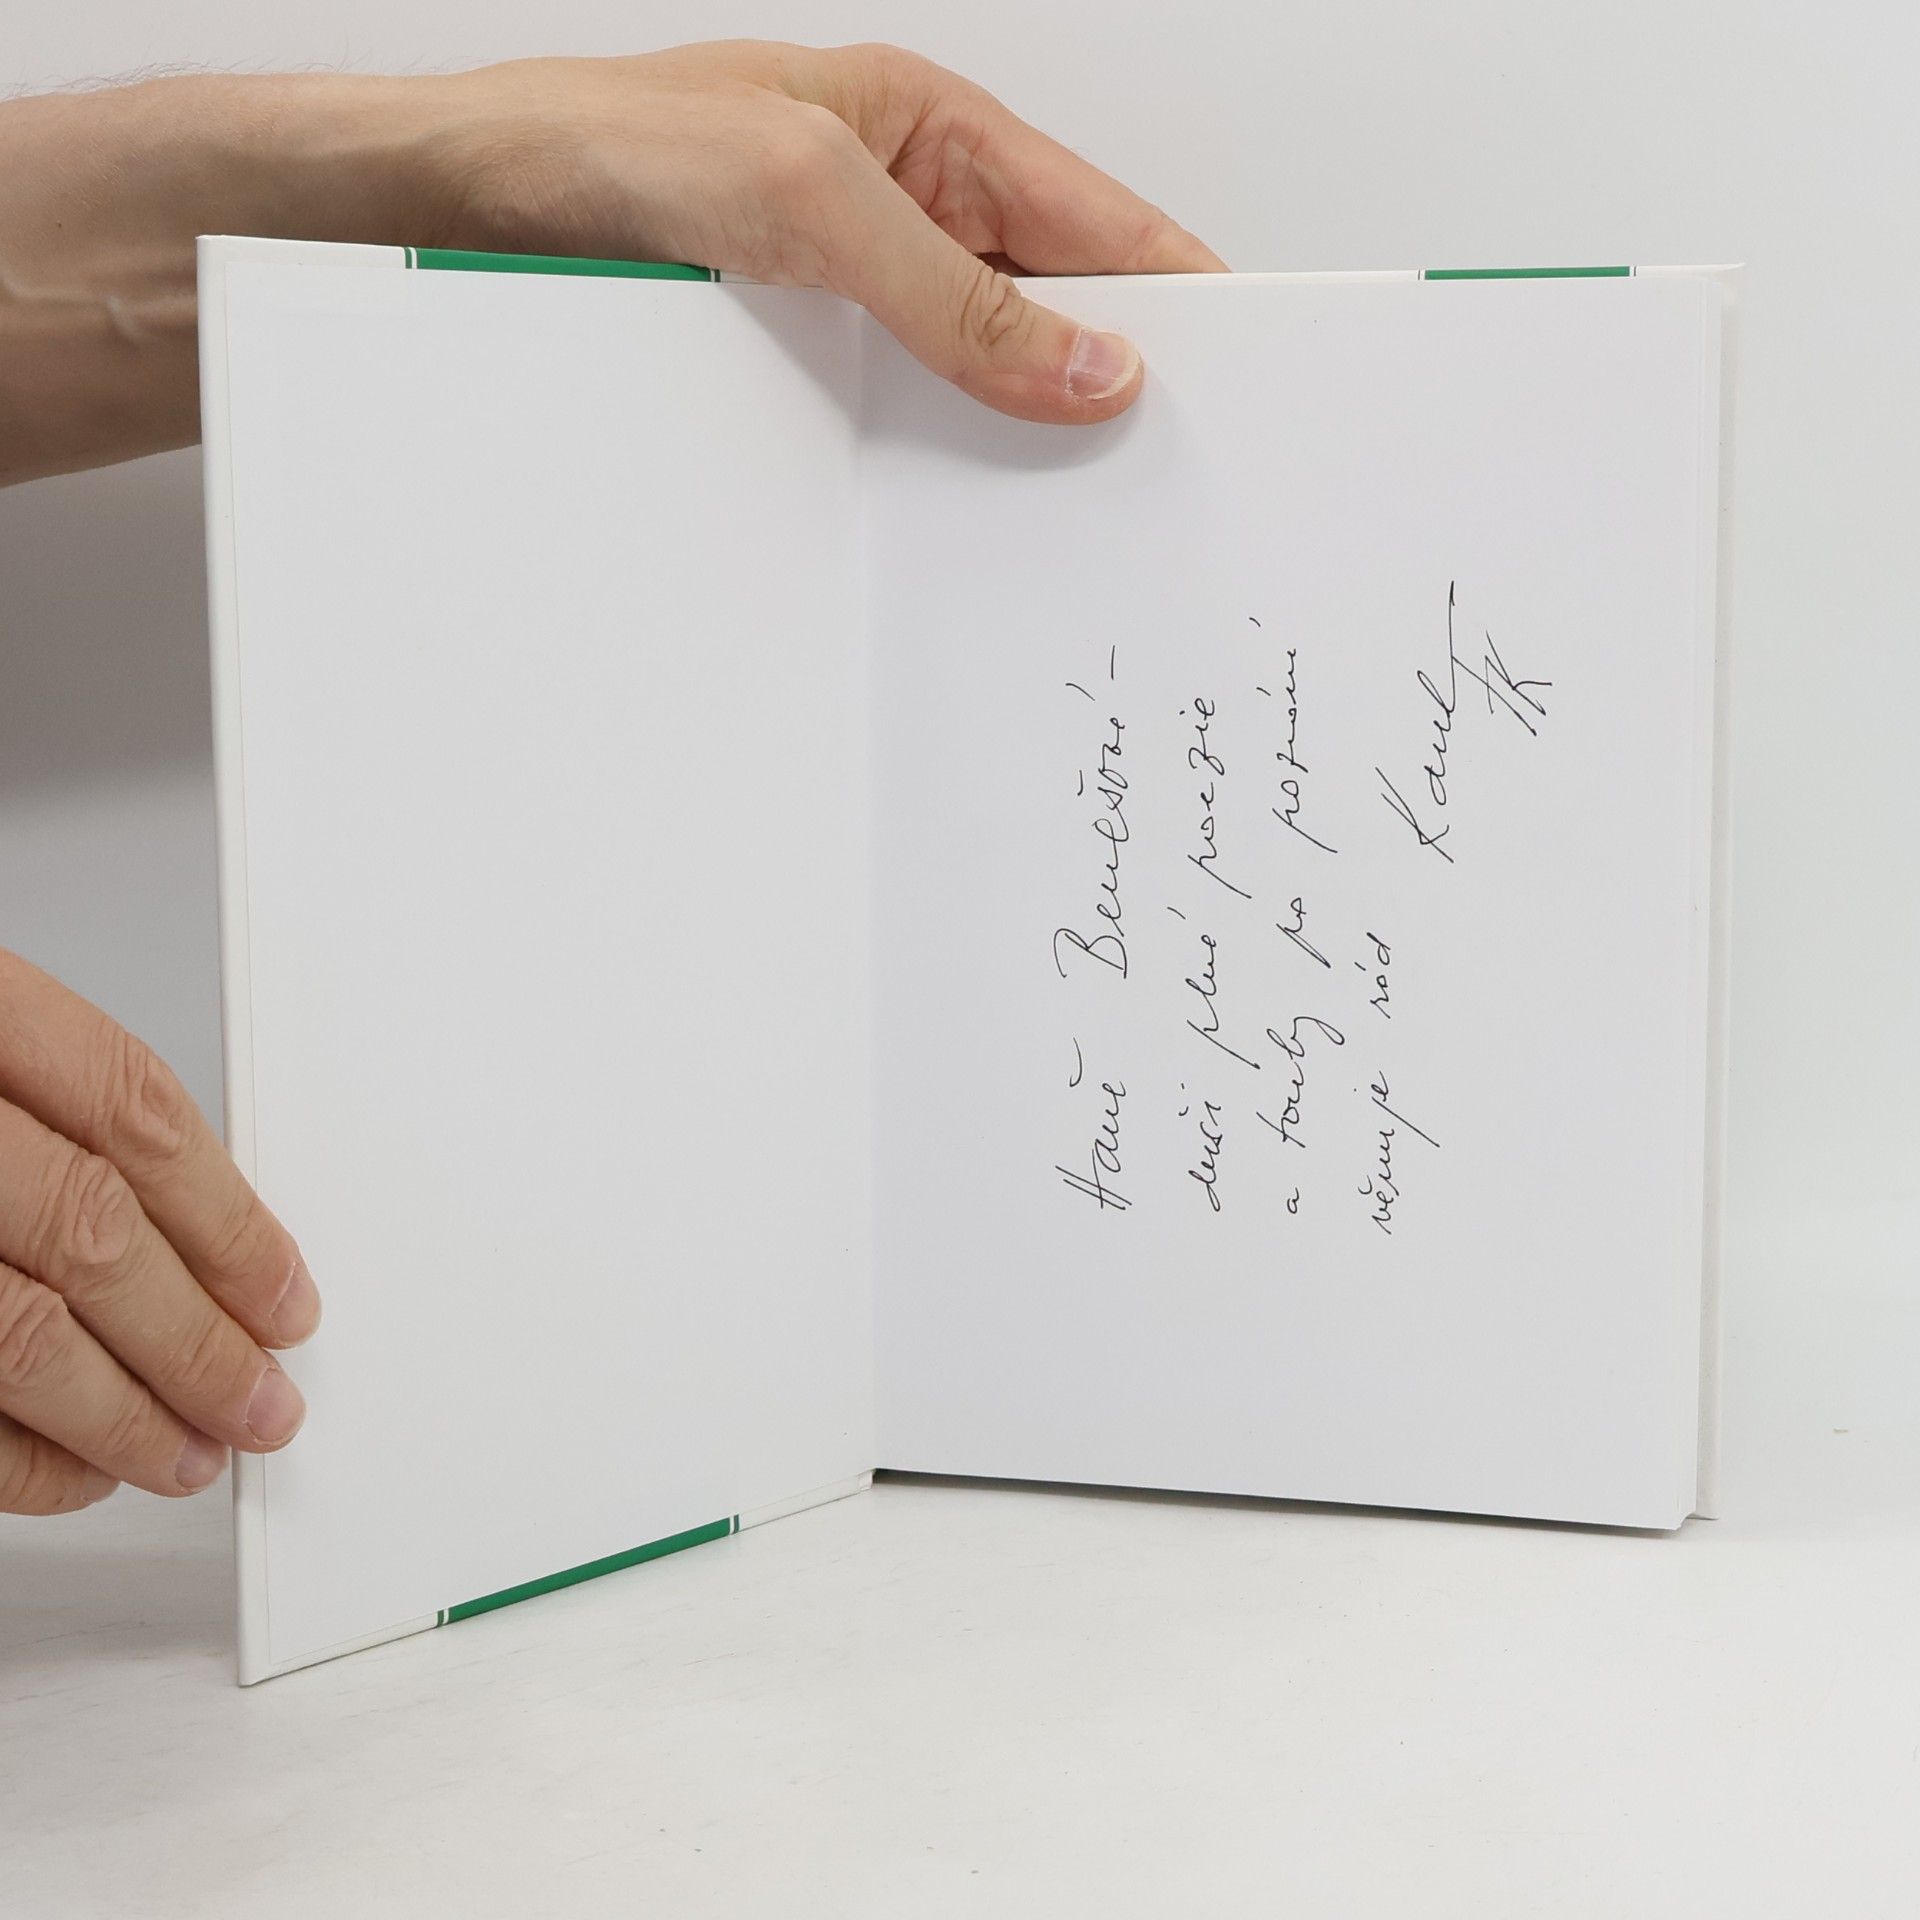 Haně Benešové –
duši plné poezie
a touhy po poznání
věnuje rád Karel